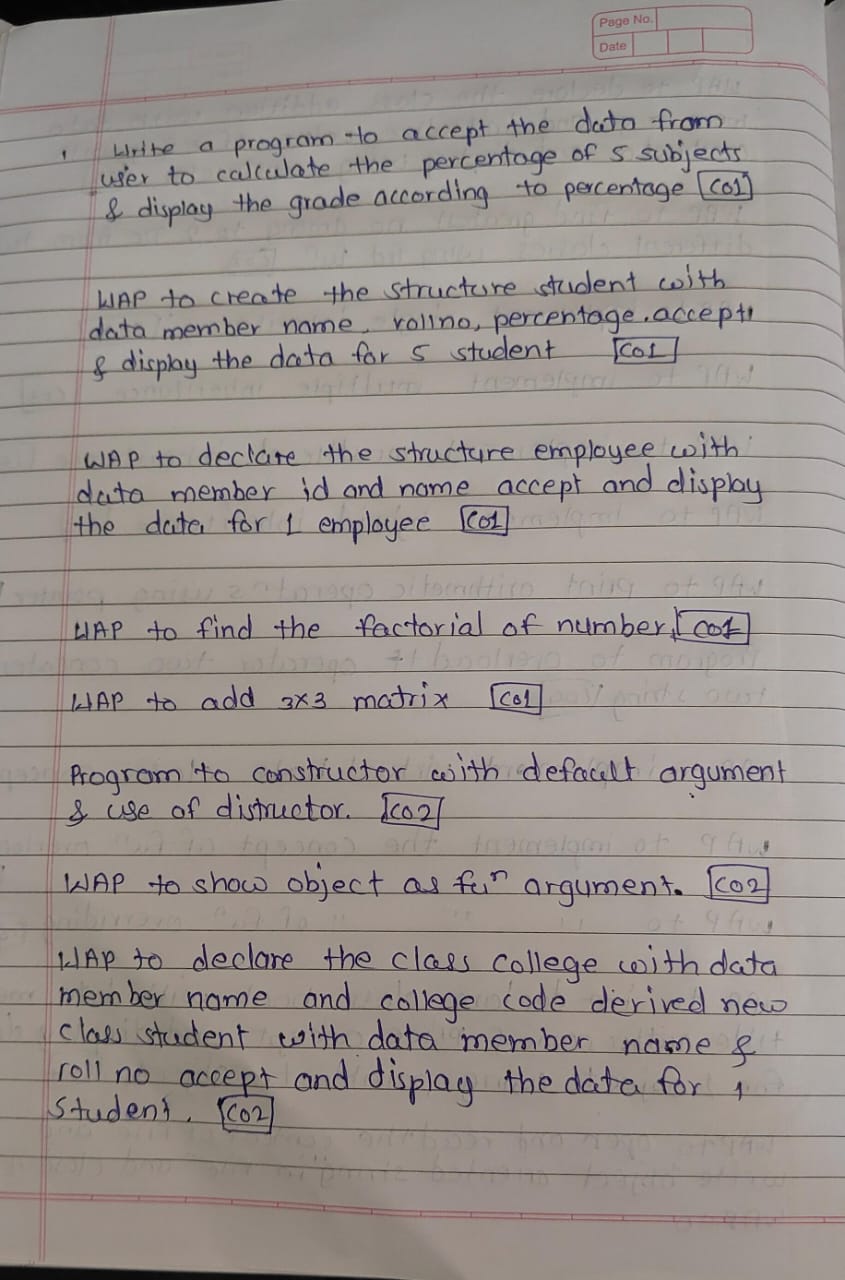 Page No.
Date
Write a program to accept the data from
user to calculate the percentage of 5 subjects
& display the grade according to percentage [CO1]
WAP to create the structure student with
data member name, rollno, percentage. accept
& display the data for 5 student [CO1]
WAP to declare the structure employee with
data member id and name accept and display
the data for 1 employee [CO1]
WAP to find the factorial of number. [CO1]
WAP to add 3x3 matrix [CO1]
Program to constructor with defacult argument
& use of distructor. [CO2]
WAP to show object as fuⁿ argument. [CO2]
WAP to declare the class college with data
member name and college code derived new
class student with data member name &
roll no accept and display the data for 1
student. [CO2]